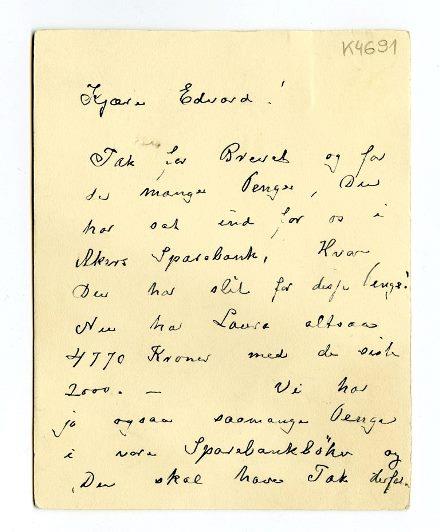 K4691
Kjære Edvard!
Tak for Brevet og for
de mange Penge, Du
har sat ind for os i
Akers Sparebank, Hvor
Du har slit for disse Penge!
Nu har Laura altsaa
4770 Kroner med de sidste
2000. — Vi har
jo ogsaa saamange Penge
i vore Sparebankbøker og
Du skal have Tak derfor.